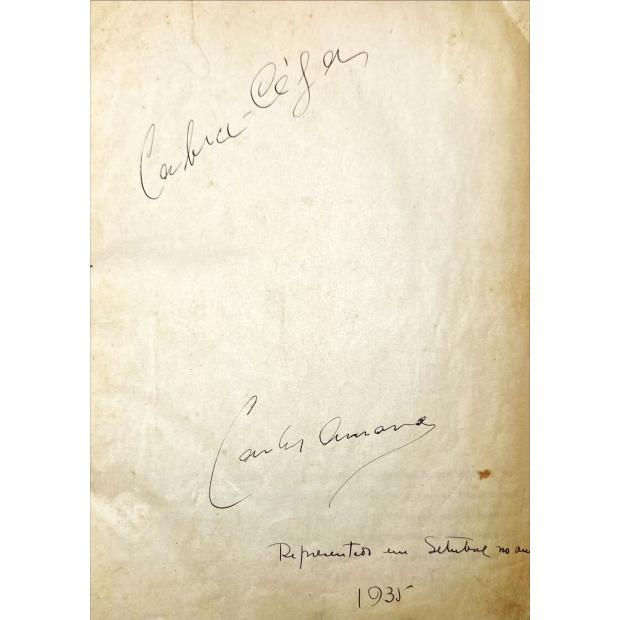 Cabra-Céga
Carlos
Representado em Setubal no an
1935